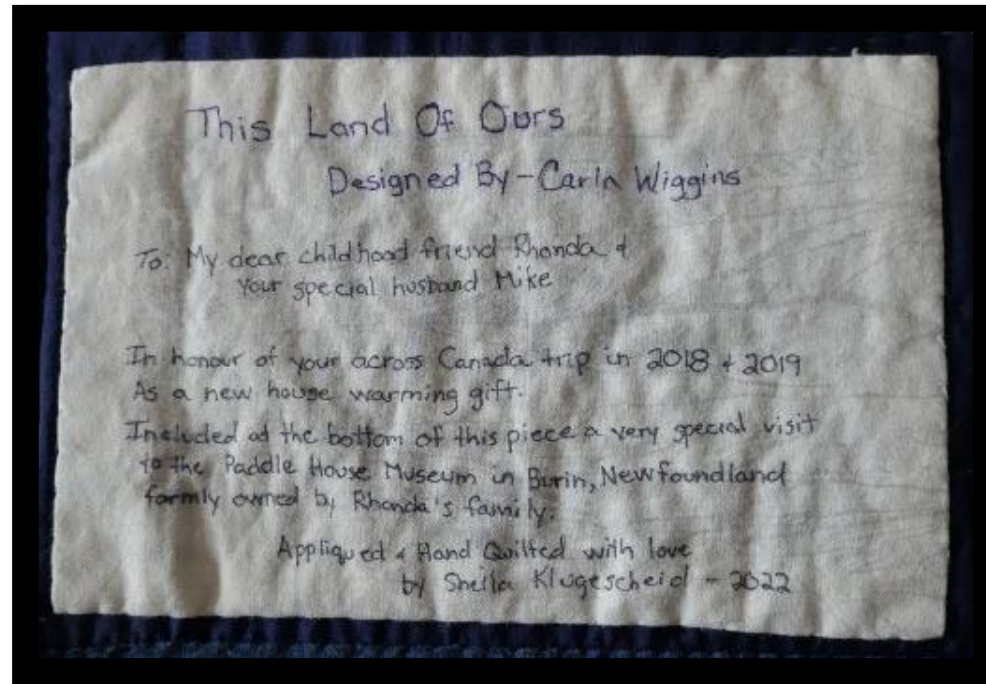 This Land Of Ours
Designed By - Carla Wiggins
To: My dear childhood friend Rhonda &
your special husband Mike
In honour of your across Canada trip in 2018 & 2019
As a new house warming gift.
Included at the bottom of this piece a very special visit
to the Paddle House Museum in Burin, Newfoundland
formly owned by Rhonda's family.
Appliqued & Hand Quilted with love
by Sheila Klugescheid - 2022